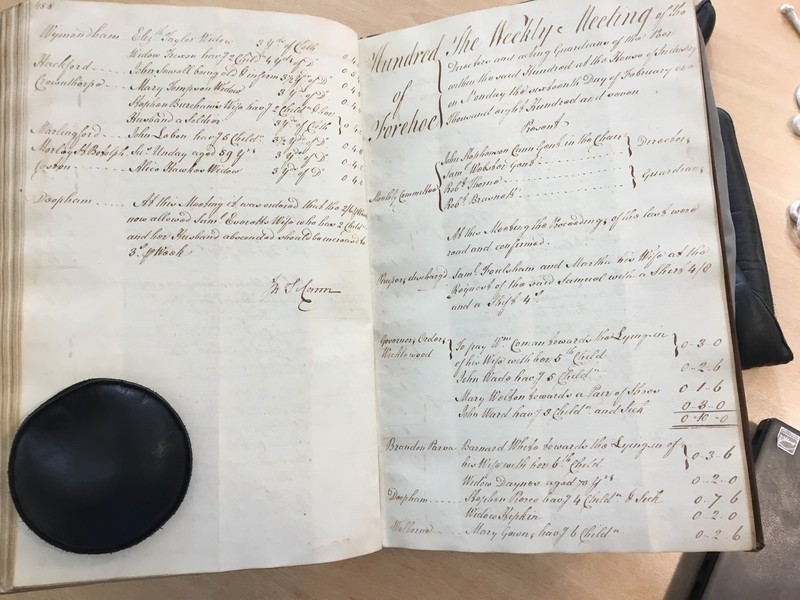 488
Wymondham Eliz.th Taylor Widow 3 y.ds of Cloth
Widow Freson hav.g 2 Child.n 4 y.ds of D.o
Hackford John Sewell being old & infirm 3½ y.ds of D.o
Crownthorpe Mary Tompson Widow 3 y.ds of D.o
Stephen Burcham's Wife hav.g 2 Child.n & her
Husband a Soldier 3 y.ds of Cloth
Marlingford John Labon hav.g 5 Child.n 3½ y.ds of D.o
Morley S.t Botolph Unday aged 59 y.rs 3 y.ds of D.o
Coston Alice Hawkes Widow 3 y.ds of D.o
Deopham At this Meeting it was ordered that the 2/6 p Week
now allowed Sam.l Everett's Wife who has 2 Child.n
and her Husband absconded should be increased to
3.s p Week
Hundred of Forehoe
The Weekly Meeting of the
Directors and acting Guardians of the Poor
within the said Hundred at the House of Industry
on Monday the sixteenth Day of February one
Thousand eight Hundred and seven
Present
Weekly Committee
John Stephenson Cann Gent. in the Chair
Sam.l Webster Gent.
Directors
Rob.t Thorne
Rob.t
Guardians
At this Meeting the Proceedings of the last were
read and confirmed.
Paupers discharged Sam.l Foulsham and Martha his Wife at the
Request of the said Samuel with a Shirt 4/8
and a Shift 4.s
Governors Orders
Wicklewood
To pay W.m Coman towards the Lying in
of his Wife with her 5.th Child 0-3-0
John Wade hav.g 5 Child.n 0-2-6
Mary Welton towards a Pair of Shoes 0 1-6
John Ward hav.g 5 Child.n and Sick 0-3-0
0-10-0
Brandon Parva Barnard White towards the Lying in of
his Wife with her 6.th Child 0-3-6
Widow Daynes aged 70 y.rs 0-2-0
Deopham Stephen Pierce hav.g 4 Child.n & Sick 0-7-6
Widow Hipkin 0-2-0
Welborne Mary Gowen hav.g 6 Child.n 0-2 6